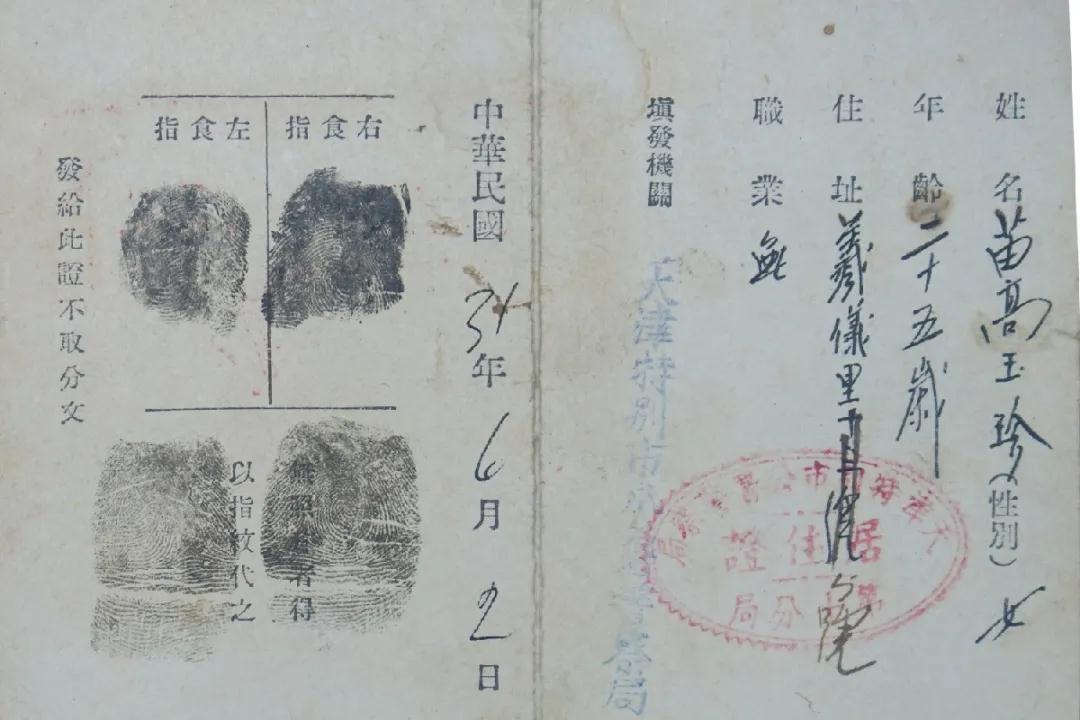 姓名苗高玉珍(性別)女
年齡二十五歲
住址義儀里
職業無
填發機關 天津特別市公署警察局
居住證
分局
中華民國31年6月2日
右食指
左食指
無照片者得
以指紋代之
發給此證不取分文